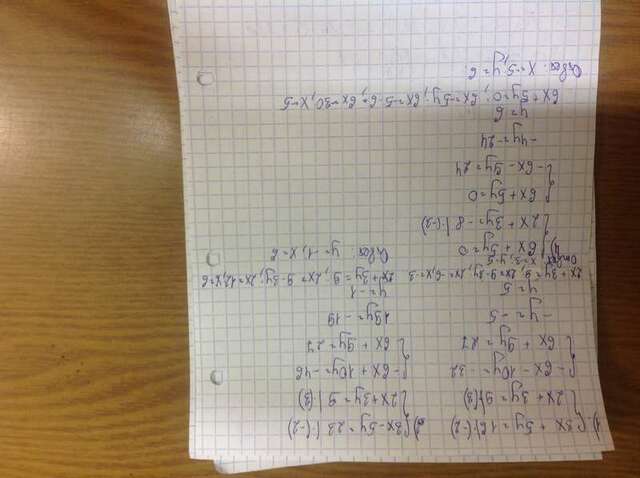 1) { 3x + 5y = 16 | ·(-2)
{ 2x + 3y = 9 | ·(3)
{ -6x - 10y = -32
{ 6x + 9y = 27
-y = -5
y = 5
2x + 3y = 9; 2x = 9 - 3y; 2x = -6; x = -3
Ответ: x = -3; y = 5
2) { 3x - 5y = 23 | ·(-2)
{ 2x + 3y = 9 | ·(3)
{ -6x + 10y = -46
{ 6x + 9y = 27
19y = -19
y = -1
2x + 3y = 9; 2x = 9 - 3y; 2x = 12; x = 6
Ответ: y = -1, x = 6
{ 6x + 5y = 0
{ 2x + 3y = 8 | ·(-3)
{ 6x + 5y = 0
{ -6x - 9y = 24
-4y = 24
y = 6
6x + 5y = 0; 6x = 5y; 6x = -5 · 6 = 6x = 30, x = 5
Ответ: x = -5, y = 6